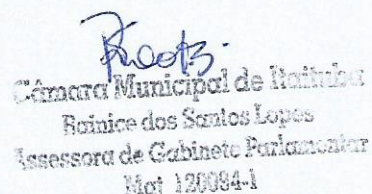 Câmara Municipal de Itaituba
Rainice dos Santos Lopes
Assessora de Gabinete Parlamentar
Mat 120084-1